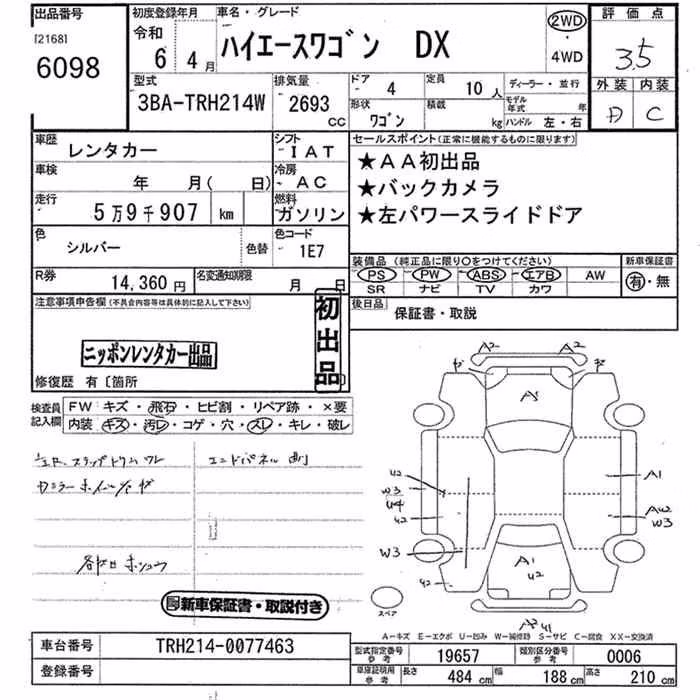 出品番号
[2168]
6098
初度登録年月
令和
6年 4月
車名・グレード
ハイエースワゴン DX
2WD
・
4WD
評価点
3.5
外装 内装
C
型式
3BA-TRH214W
排気量
2693 cc
ドア 4
定員 10人
ディーラー・並行
形状 ワゴン
積載 kg
モデル年式 年
ハンドル 左・右
車歴 レンタカー
シフト IAT
車検 年 月( 日)
冷房 AC
走行 5万9千907 km
燃料 ガソリン
色 シルバー
色替
色コード 1E7
R券 14,360円
名変通知期限 月 日
セールスポイント(正常に機能するものに限ります)
★AA初出品
★バックカメラ
★左パワースライドドア
装備品 (純正品に限り○をつけてください)
PS PW ABS エアB AW
SR ナビ TV カワ
新車保証書
有・無
後日品 保証書・取説
注意事項申告欄(不具合内容等は具体的に記入して下さい)
ニッポンレンタカー出品
初出品
修復歴 有〔箇所
検査員記入欄
FW キズ・飛石・ヒビ割・リペア跡・×要
内装 キズ・汚レ・コゲ・穴・スレ・キレ・破レ
エンドパネル
新車保証書・取説付き
A2 A2
A1
U2
W3
U4
U2
W3
U2
A1
AW
W3
A1
U2
スペア
A-キズ E-エクボ U-凹み W-補修跡 S-サビ C-腐食 XX-交換済
車台番号 TRH214-0077463
登録番号
型式指定番号 参考 19657
類別区分番号 参考 0006
車庫証明用 参考 長さ 484 cm 幅 188 cm 高さ 210 cm